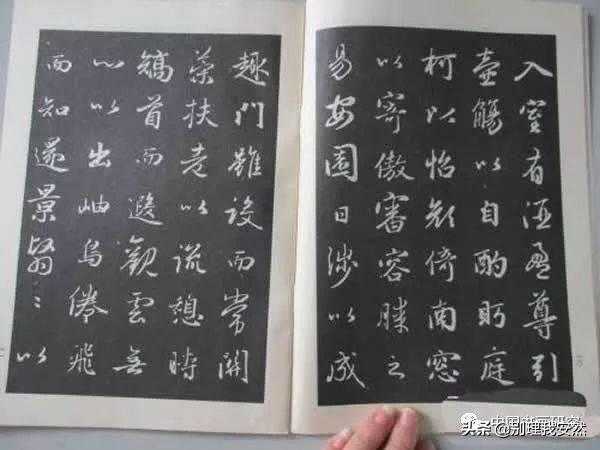 入室有酒盈尊引
壺觴以自酌眄庭
柯以怡顏倚南窓
以寄傲審容膝之
易安園日涉以成
趣門雖設而常關
策扶老以流憩時
矯首而遐觀雲無
心以出岫鳥倦飛
而知還景翳々以
中国书画研究
头条 @别理我安然